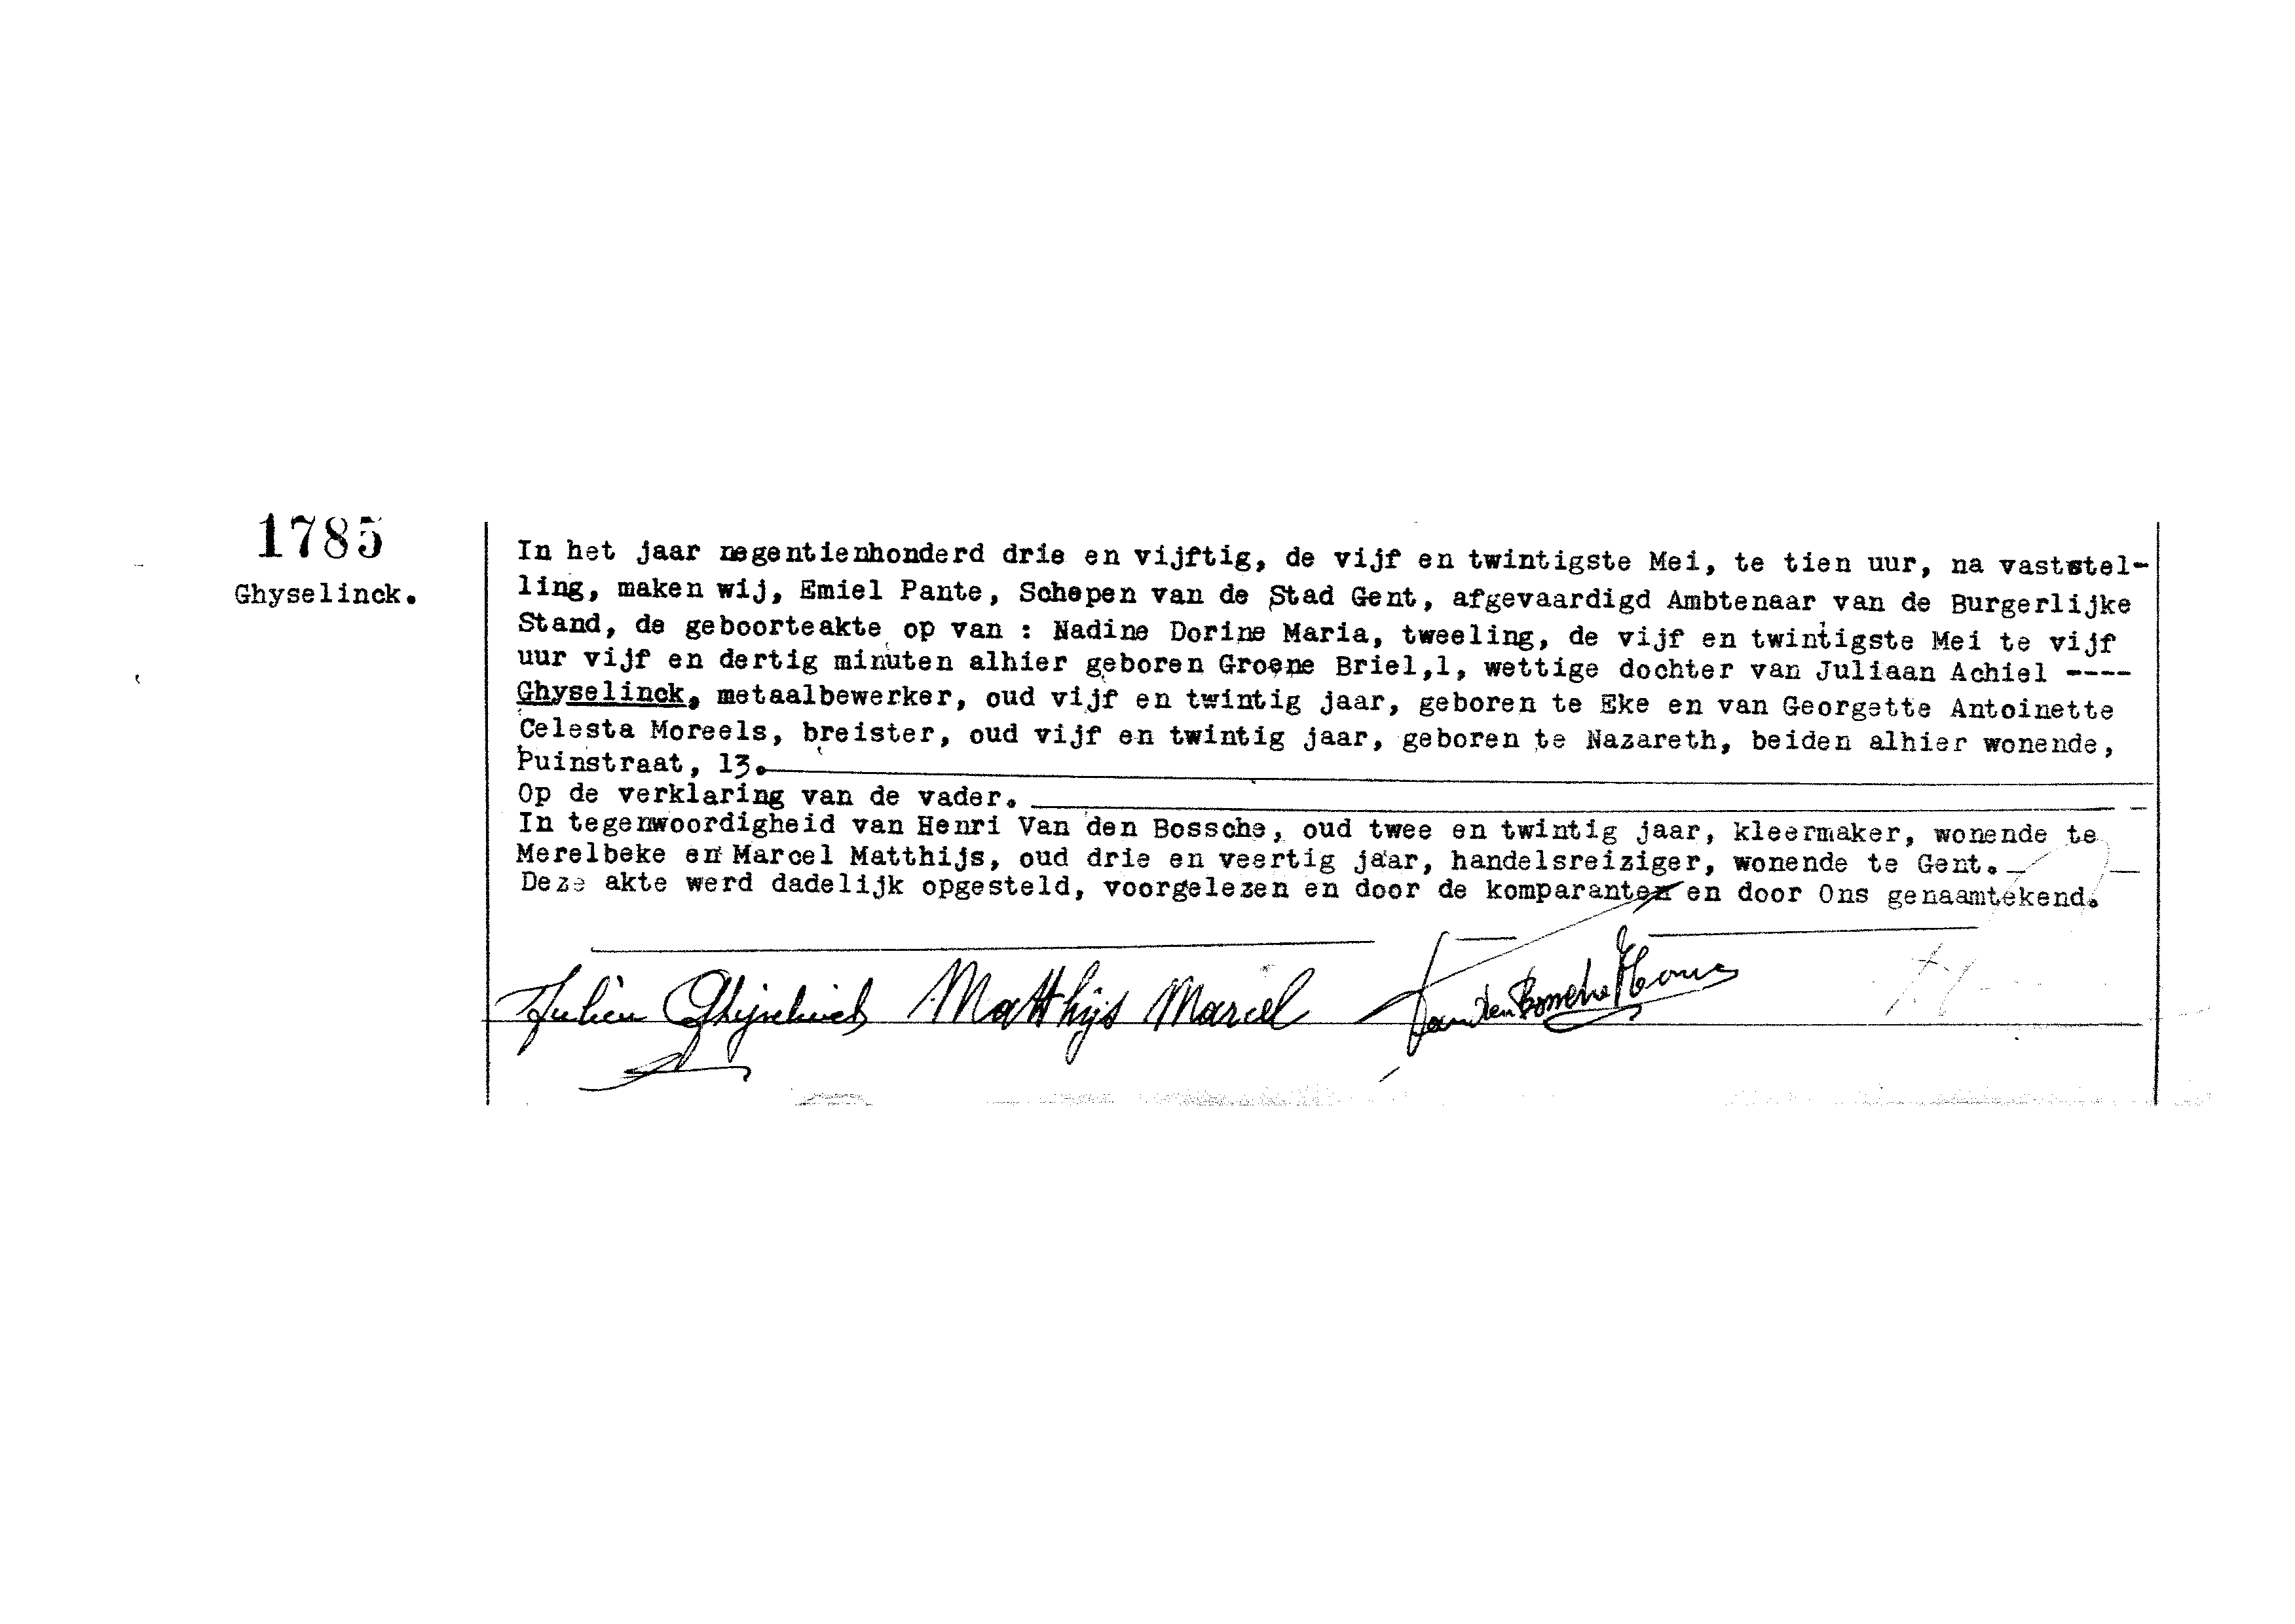 1785
Ghyselinck.
In het jaar negentienhonderd drie en vijftig, de vijf en twintigste Mei, te tien uur, na vaststel-
ling, maken wij, Emiel Pante, Schepen van de Stad Gent, afgevaardigd Ambtenaar van de Burgerlijke
Stand, de geboorteakte op van : Nadine Dorine Maria, tweeling, de vijf en twintigste Mei te vijf
uur vijf en dertig minuten alhier geboren Groene Briel,1, wettige dochter van Juliaan Achiel ----
Ghyselinck, metaalbewerker, oud vijf en twintig jaar, geboren te Eke en van Georgette Antoinette
Celesta Moreels, breister, oud vijf en twintig jaar, geboren te Nazareth, beiden alhier wonende,
Puinstraat, 13.
Op de verklaring van de vader.
In tegenwoordigheid van Henri Van den Bossche, oud twee en twintig jaar, kleermaker, wonende te
Merelbeke en Marcel Matthijs, oud drie en veertig jaar, handelsreiziger, wonende te Gent.
Deze akte werd dadelijk opgesteld, voorgelezen en door de komparanten en door Ons genaamtekend.
Julien Ghijselinck Matthijs Marcel Van den Bossche